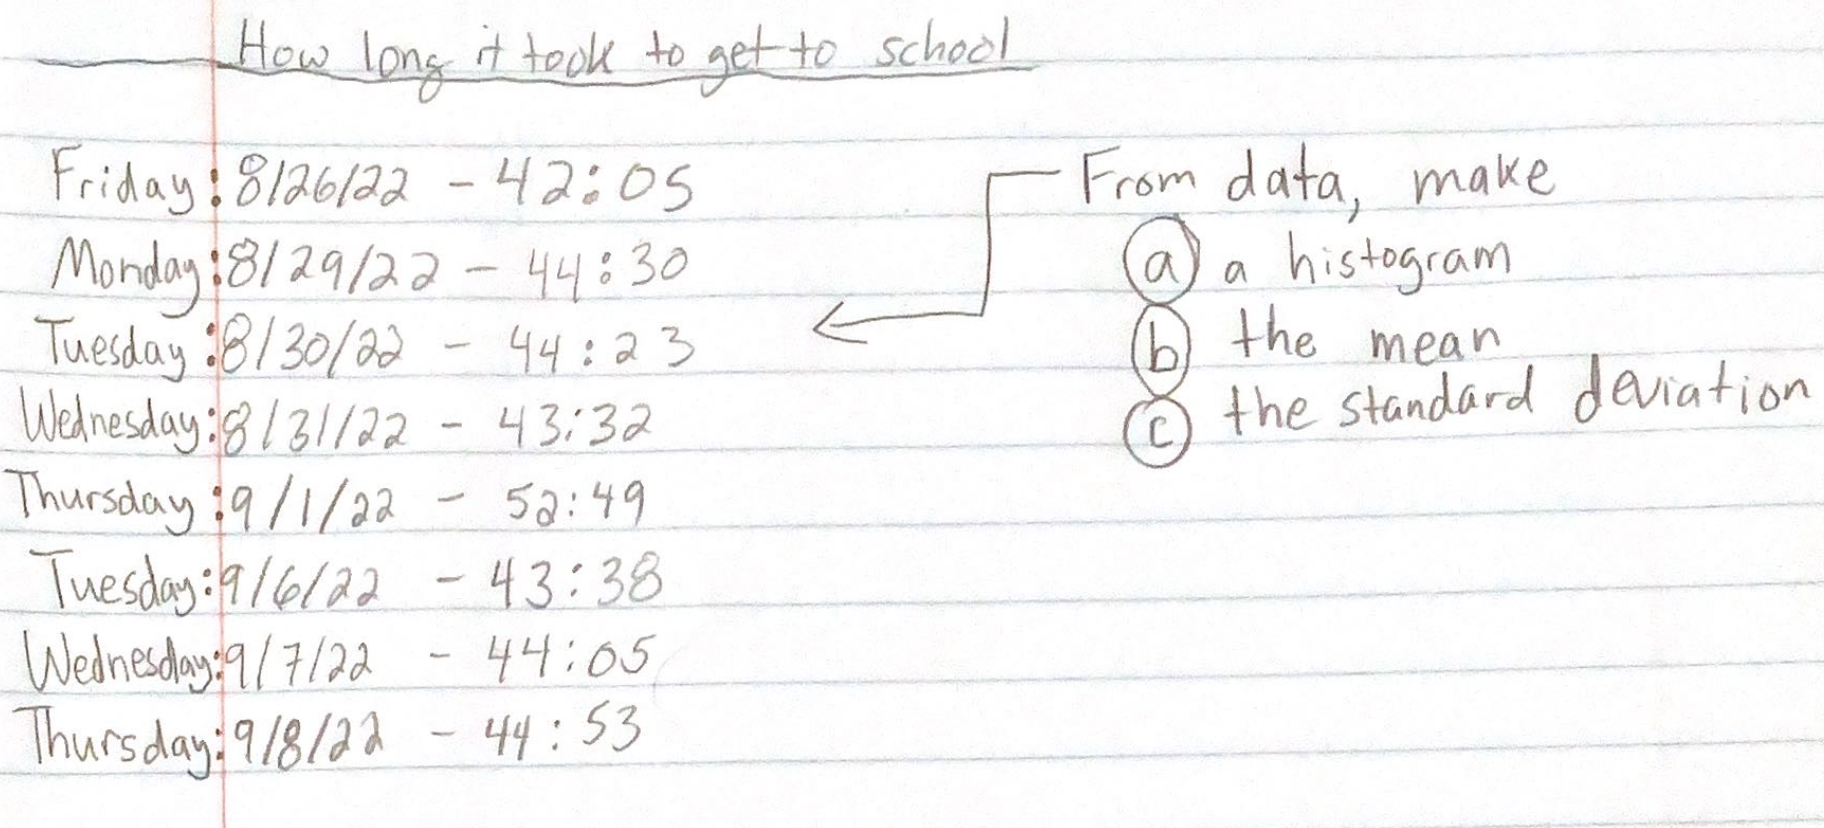 How long it took to get to school
Friday: 8/26/22 - 42:05
Monday: 8/29/22 - 44:30
Tuesday: 8/30/22 - 44:23
Wednesday: 8/31/22 - 43:32
Thursday: 9/1/22 - 52:49
Tuesday: 9/6/22 - 43:38
Wednesday: 9/7/22 - 44:05
Thursday: 9/8/22 - 44:53
From data, make
a a histogram
b the mean
c the standard deviation